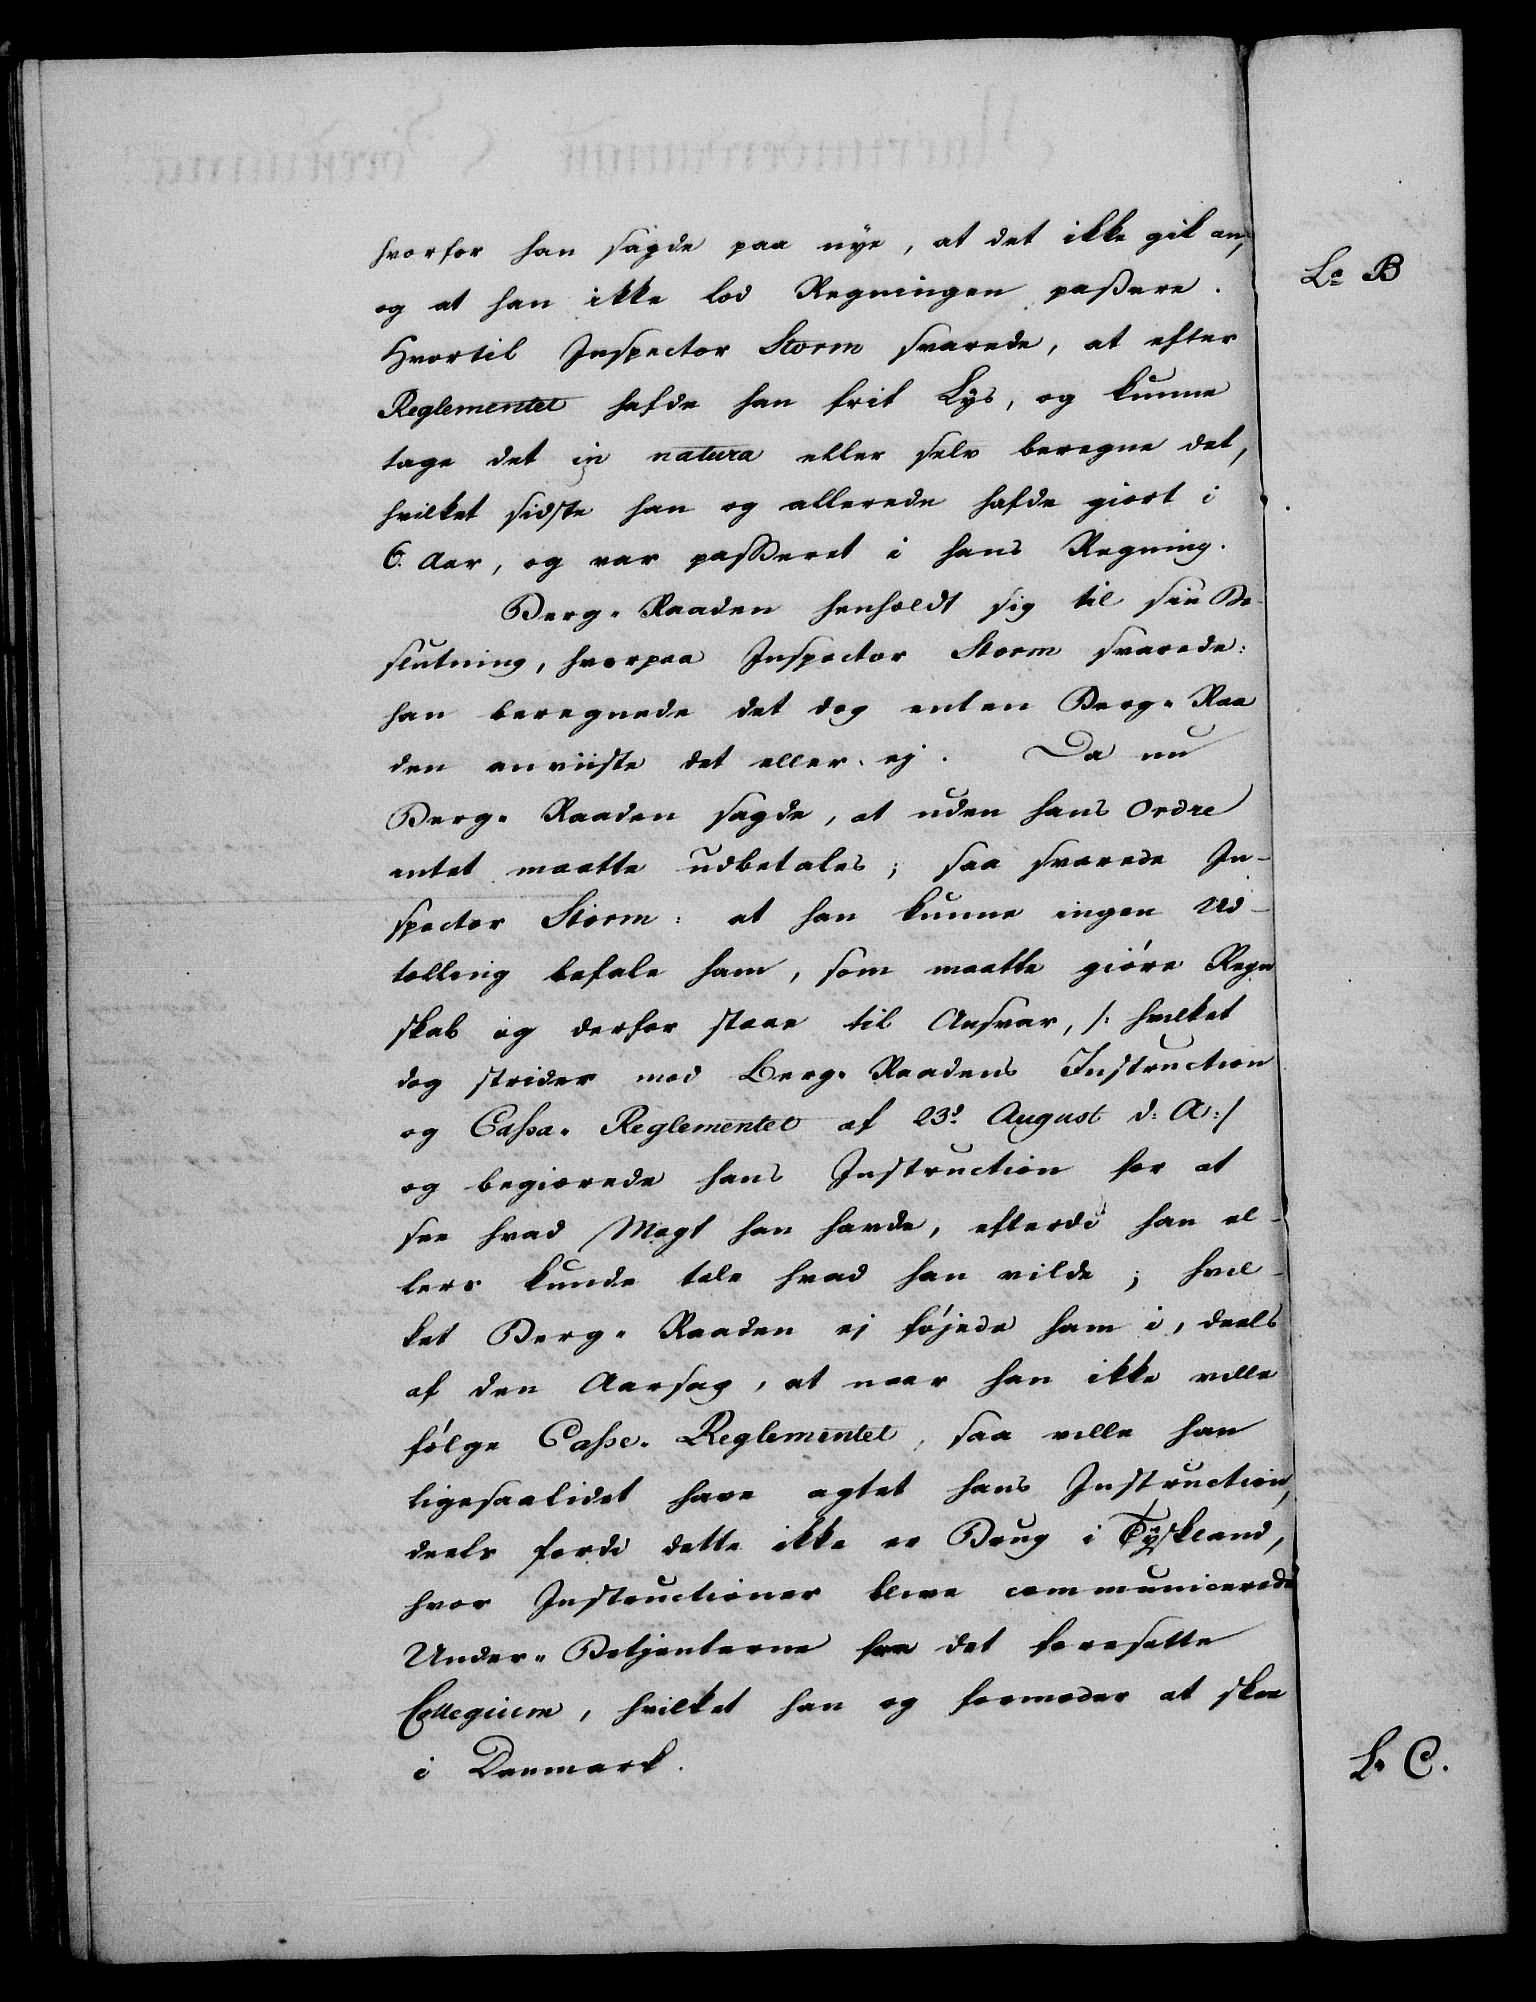 hvorfor han sagde paa nye, at det ikke gik an,
og at han ikke lod Regningen passere.
Hvortil Inspector Storm svarede, at efter
Reglementet hafde han frit Lys, og kunne
tage det in natura eller selv beregne det,
hvilket sidste han og allerede hafde giort i
6. Aar, og var passeret i hans Regning.
Berg-Raaden henholdt sig til sin Be-
slutning, hvorpaa Inspector Storm svarede:
han beregnede det dog enten Berg-Raa
den anviiste det eller ej. Da nu
Berg-Raaden sagde, at uden hans Ordre
intet maatte udbetales; saa svarede In-
spector Storm: at han kunne ingen Ud-
telling befale ham, som maatte giøre Regn
skab og derfor staae til Ansvar, /: hvilket
dog strider mod Berg-Raadens Instruction
og Cassa-Reglementet af 23d August d: A: /
og begiærede hans Instruction for at
see hvad Magt han havde, efterdi han el-
lers kunde tale hvad han vilde; hvil-
ket Berg-Raaden ej føjede ham i, deels
af den Aarsag, at naar han ikke ville
følge Casse-Reglementet, saa ville han
ligesaalidet have agtet hans Instruction,
deels fordi dette ikke er Brug i Tÿskland,
hvor Instructioner blive communicerede
Under-Betjenterne fra det foresatte
Collegium, hvilket han og formoder at skee
i Danmark.
La B
L. C.